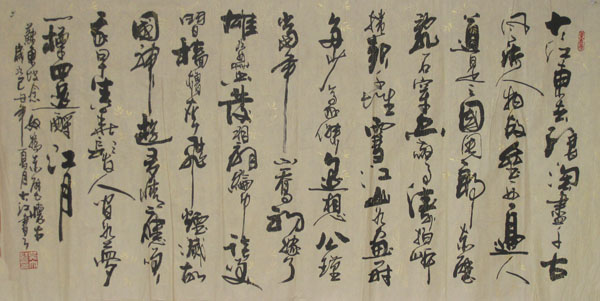 大江東去浪淘盡千古
风流人物故壘西邊人
道是三國周郎赤壁
亂石穿空驚濤拍岸
捲起千堆雪江山如畫一時
多少豪傑遙想公瑾
當年小喬初嫁了
雄姿英發羽扇綸巾談笑
間檣櫓灰飛煙滅故
國神遊多情應笑
我早生華髮人間如夢
一樽還酹江月
蘇東坡念奴嬌赤壁懷古
歲次己丑年夏月